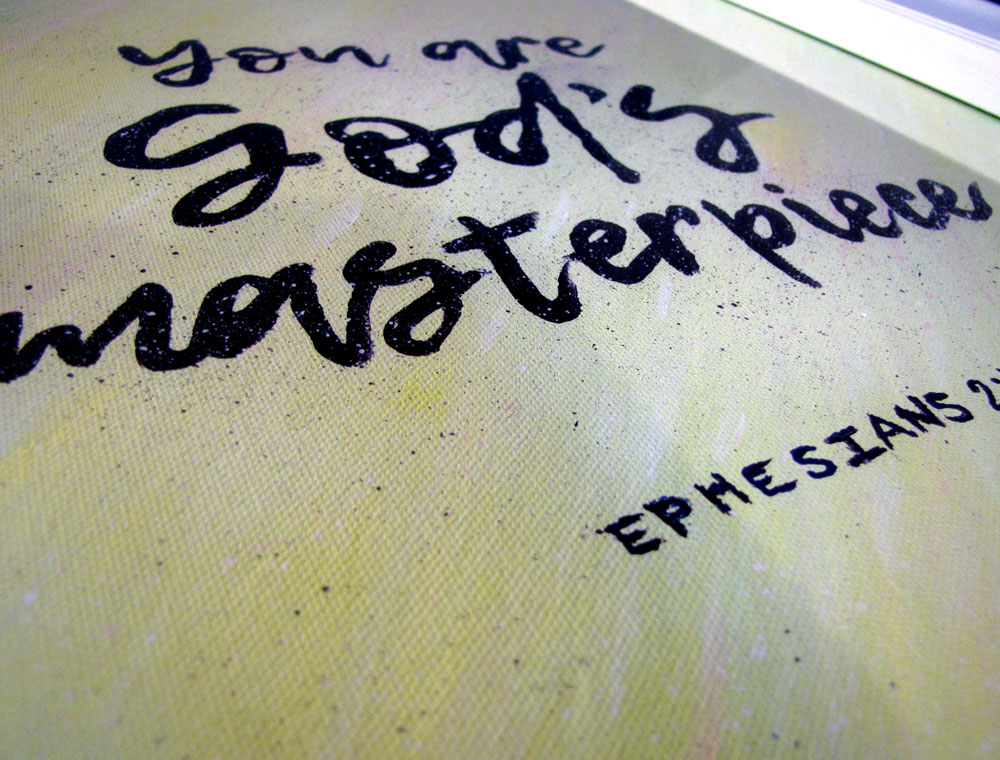 You are
God's
masterpiece
EPHESIANS 2: